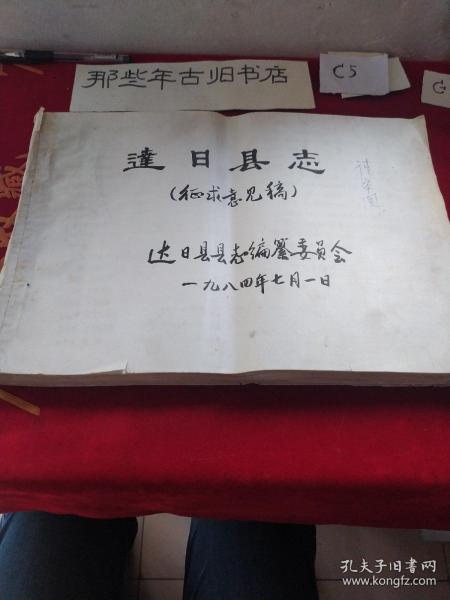 那些年古旧书店
C5
G
達日县志
（征求意见稿）
达日县县志编纂委员会
一九八四年七月一日
孔夫子旧书网
www.kongfz.com